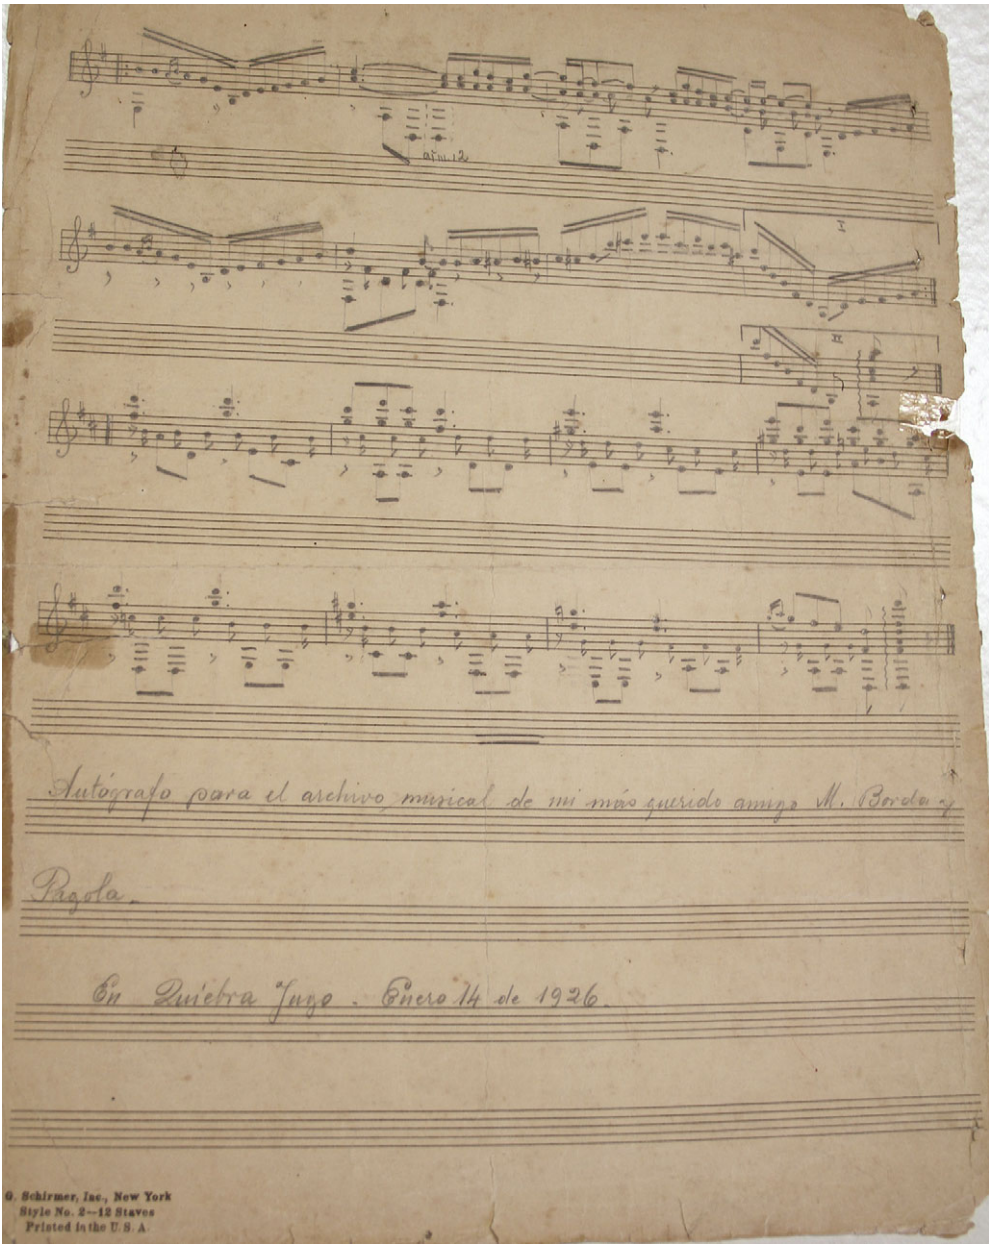 arm. 12
I
II
Autógrafo para el archivo musical de mi más querido amigo M. Borda y
Pagola.
En Quiebra Yugo. Enero 14 de 1926.
G. Schirmer, Inc., New York
Style No. 2—12 Staves
Printed in the U.S.A.